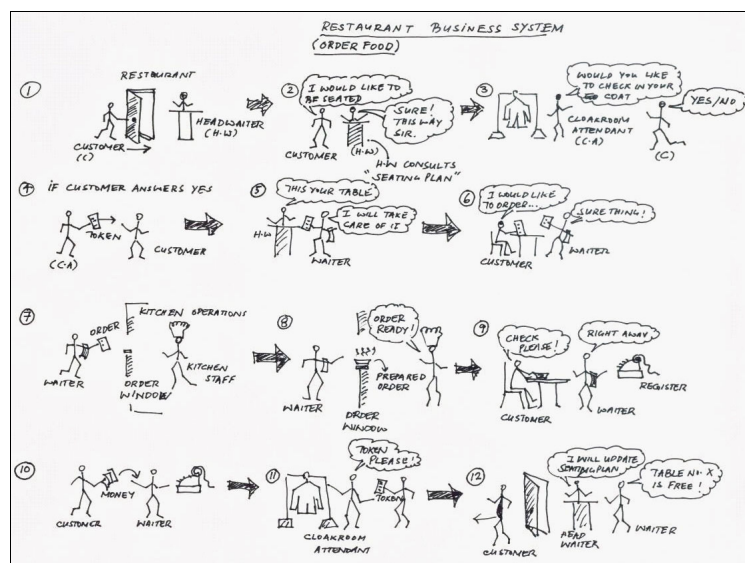 RESTAURANT BUSINESS SYSTEM
(ORDER FOOD)
①
RESTAURANT
CUSTOMER
(C)
HEADWAITER
(H.W)
②
I WOULD LIKE TO
BE SEATED
SURE!
THIS WAY
SIR.
CUSTOMER
(H.W)
H.W CONSULTS
"SEATING PLAN"
③
WOULD YOU LIKE
TO CHECK IN YOUR
COAT
YES/NO
CLOAKROOM
ATTENDANT
(C.A)
(C)
④ IF CUSTOMER ANSWERS YES
TOKEN
(C.A)
CUSTOMER
⑤
THIS YOUR TABLE
I WILL TAKE
CARE OF IT
H.W
WAITER
⑥
I WOULD LIKE
TO ORDER...
SURE THING!
CUSTOMER
WAITER
⑦
ORDER
KITCHEN OPERATIONS
WAITER
ORDER
WINDOW
KITCHEN
STAFF
⑧
ORDER
READY!
PREPARED
ORDER
WAITER
ORDER
WINDOW
⑨
CHECK
PLEASE!
RIGHT AWAY
CUSTOMER
WAITER
REGISTER
⑩
MONEY
CUSTONER
WAITER
⑪
TOKEN
PLEASE!
TOKEN
CLOAKROOM
ATTENDANT
⑫
I WILL UPDATE
SEATING PLAN
TABLE NO. X
IS FREE!
CUSTOMER
HEAD
WAITER
WAITER